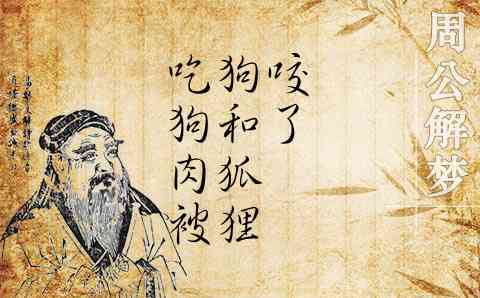 吃狗肉被
狗和狐狸
咬了
周公解梦